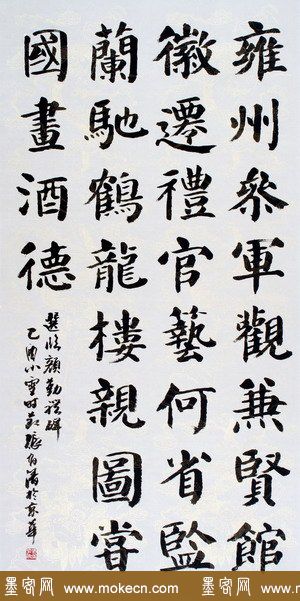 雍州叅軍觀兼賢館
徽遷禮官藝何省監
蘭馳鶴龍樓親圖嘗
國畫酒德
選臨顏勤禮碑
乙酉小雪時於京華
墨客网 www.mokecn.com 墨客网 www.mokecn.com